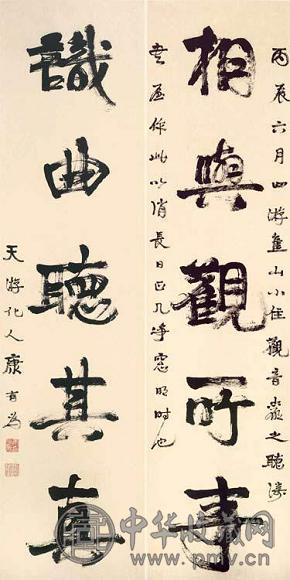 丙辰六月四游焦山小住觀音巖之聽濤
相與觀所事
書屋作此以消長日正几淨窗明時也
識曲聽其真
天游化人康有為
中华收藏网
www.pmv.cn